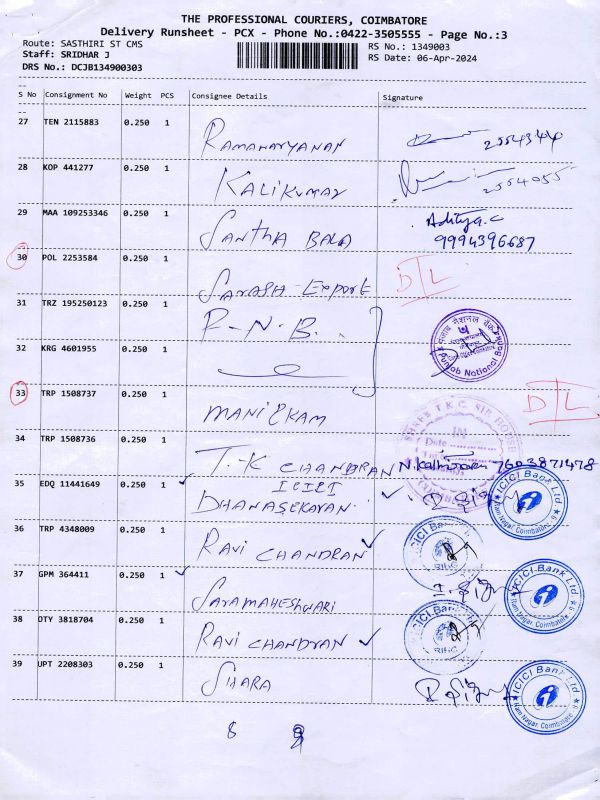 THE PROFESSIONAL COURIERS, COIMBATORE
Delivery Runsheet - PCX - Phone No.:0422-3505555 - Page No.:3
Route: SASTHIRI ST CMS
RS No.: 1349003
Staff: SRIDHAR J
RS Date: 06-Apr-2024
DRS No.: DCJB134900303
S No Consignment No Weight PCS Consignee Details Signature
27 TEN 2115883 0.250 1 RAMANARYANAN 2554344
28 KOP 441277 0.250 1 KALIKUMAY 2554055
29 MAA 109253346 0.250 1 SANTHA BALA Aditya.c
9994396687
30 POL 2253584 0.250 1 SARASH EXPORT D/L
31 TRZ 195250123 0.250 1 P-N-B. पंजाब नैशनल बैंक Punjab National Bank
32 KRG 4601955 0.250 1
33 TRP 1508737 0.250 1 MANICKAM D/L
34 TRP 1508736 0.250 1 T.K CHANDRAN 7603871478
35 EDQ 11441649 0.250 1 ICICI
DHANASEKARAN ICICI Bank Ltd Ram Nagar, Coimbatore
36 TRP 4348009 0.250 1 RAVI CHANDRAN ICICI Bank
37 GPM 364411 0.250 1 SARAMAHESHWARI ICICI Bank Ltd Ram Nagar, Coimbatore
38 OTY 3818704 0.250 1 RAVI CHANDRAN ICICI Bank
39 UPT 2208303 0.250 1 SHARA ICICI Bank Ltd Ram Nagar, Coimbatore
8